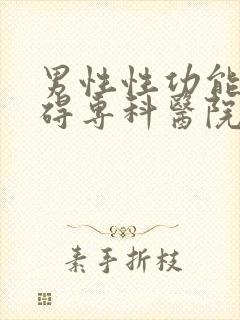 男性性功能
碍专科醫院
素手折枝